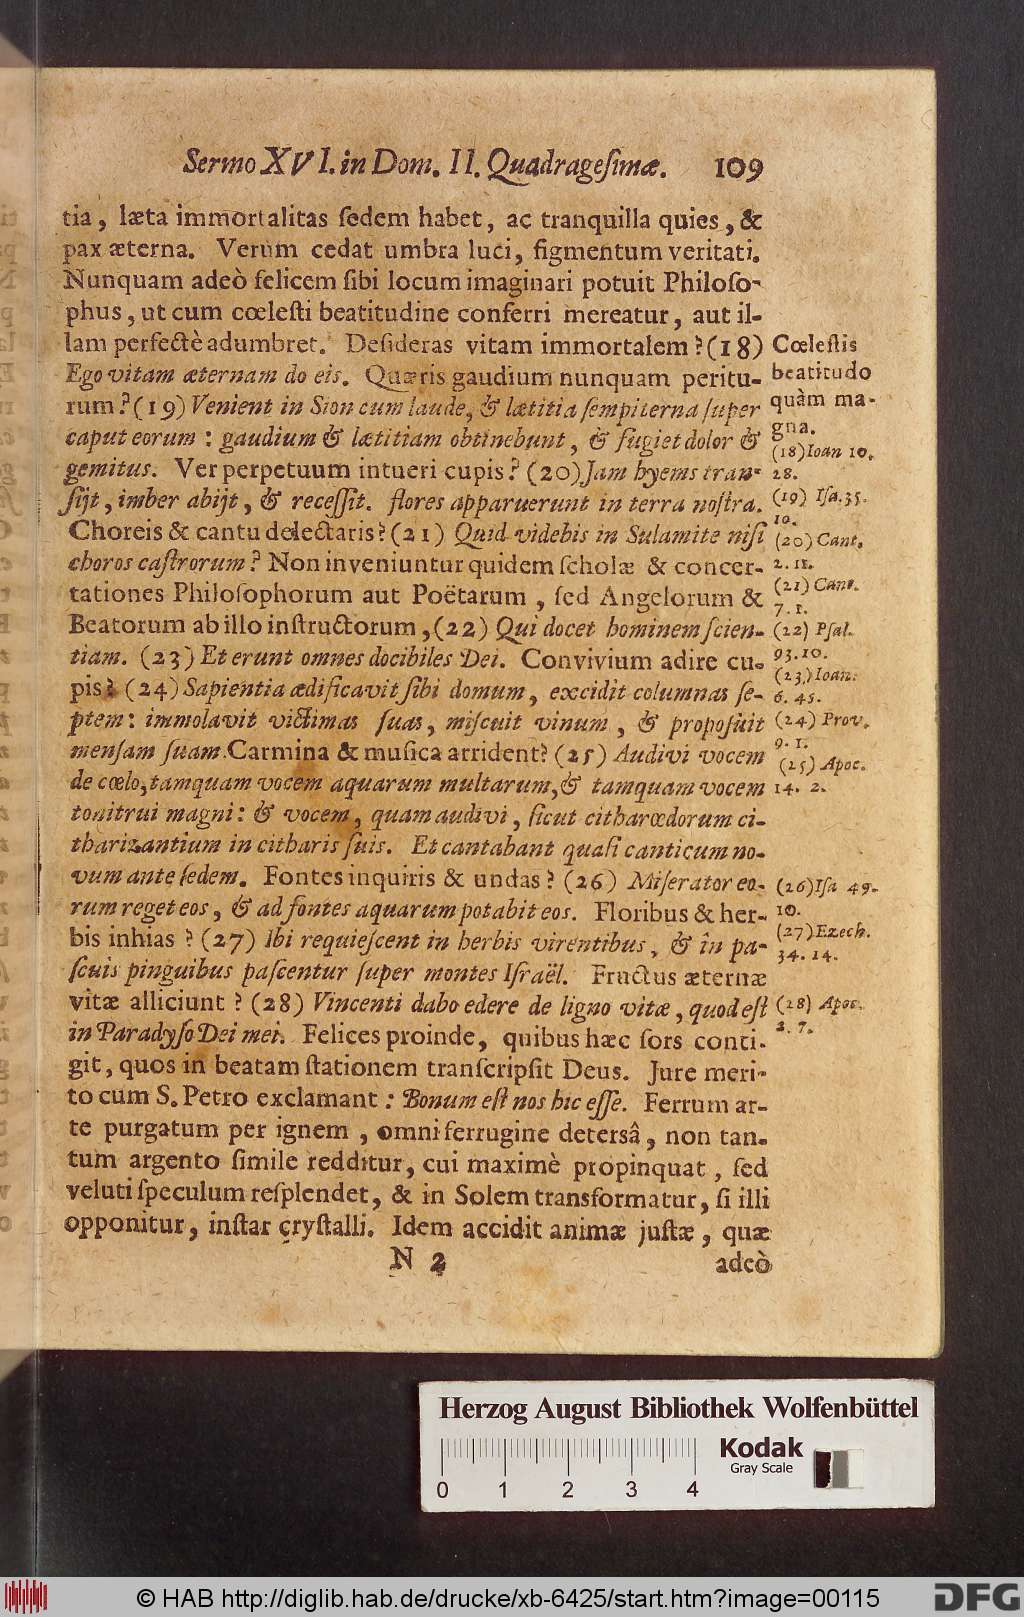 Sermo XVI. in Dom. II. Quadrageſimæ. 109
tia, læta immortalitas ſedem habet, ac tranquilla quies, &
pax æterna. Verùm cedat umbra luci, figmentum veritati.
Nunquam adeò felicem ſibi locum imaginari potuit Philoſo-
phus, ut cum cœleſti beatitudine conferri mereatur, aut il-
lam perfectè adumbret. Deſideras vitam immortalem? (18)
Ego vitam æternam do eis. Quæris gaudium nunquam peritu-
rum? (19) Venient in Sion cum laude, & lætitia ſempiterna ſuper
caput eorum: gaudium & lætitiam obtinebunt, & fugiet dolor &
gemitus. Ver perpetuum intueri cupis? (20) Jam hyems tran-
ſijt, imber abijt, & receſſit. flores apparuerunt in terra noſtra.
Choreis & cantu delectaris? (21) Quid videbis in Sulamite niſi
choros caſtrorum? Non inveniuntur quidem ſcholæ & concer-
tationes Philoſophorum aut Poëtarum, ſed Angelorum &
Beatorum ab illo inſtructorum, (22) Qui docet hominem ſcien-
tiam. (23) Et erunt omnes docibiles Dei. Convivium adire cu-
pis? (24) Sapientia ædificavit ſibi domum, excidit columnas ſe-
ptem: immolavit victimas ſuas, miſcuit vinum, & propoſuit
menſam ſuam. Carmina & muſica arrident? (25) Audivi vocem
de cœlo, tamquam vocem aquarum multarum, & tamquam vocem
tonitrui magni: & vocem, quam audivi, ſicut citharœdorum ci-
tharizantium in citharis ſuis. Et cantabant quaſi canticum no-
vum ante ſedem. Fontes inquiris & undas? (26) Miſerator eo-
rum reget eos, & ad fontes aquarum potabit eos. Floribus & her-
bis inhias? (27) Ibi requieſcent in herbis virentibus, & în pa-
ſcuis pinguibus paſcentur ſuper montes Iſraël. Fructus æternæ
vitæ alliciunt? (28) Vincenti dabo edere de ligno vitæ, quod eſt
in Paradyſo Dei mei. Felices proinde, quibus hæc ſors conti-
git, quos in beatam ſtationem tranſcripſit Deus. Jure meri-
to cum S. Petro exclamant: Bonum eſt nos hic eſſe. Ferrum ar-
te purgatum per ignem, omni ferrugine detersâ, non tan-
tum argento ſimile redditur, cui maximè propinquat, ſed
veluti ſpeculum reſplendet, & in Solem transformatur, ſi illi
opponitur, inſtar cryſtalli. Idem accidit animæ juſtæ, quæ
N 2 adeò
Cœleſtis
beatitudo
quàm ma-
gna.
(18) Ioan 10.
28.
(19) Iſa. 35.
10.
(20) Cant.
2. 11.
(21) Cant.
7. 1.
(22) Pſal.
93. 10.
(23) Ioan.
6. 45.
(24) Prov.
9. 1.
(25) Apoc.
14. 2.
(26) Iſa 49.
10.
(27) Ezech.
34. 14.
(28) Apoc.
2. 7.
Herzog August Bibliothek Wolfenbüttel
Kodak
Gray Scale
0 1 2 3 4
© HAB http://diglib.hab.de/drucke/xb-6425/start.htm?image=00115
DFG